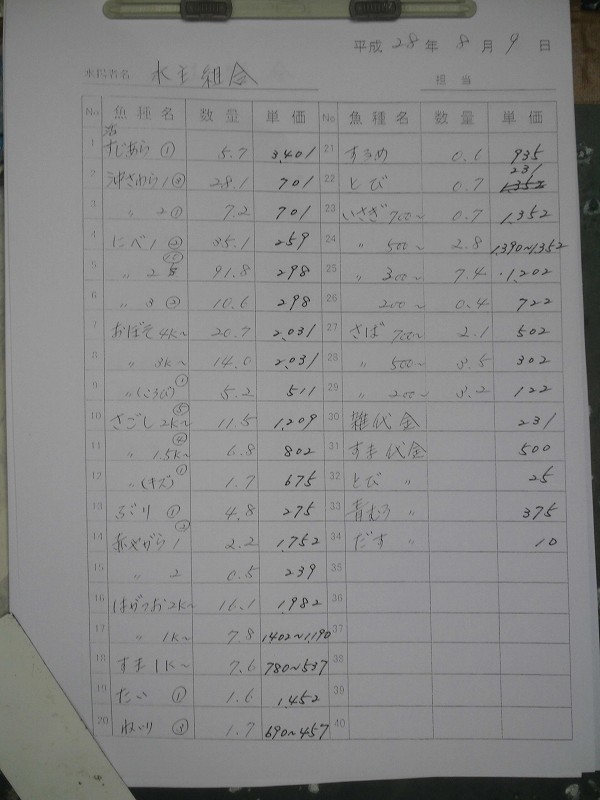 平成 28 年 8 月 9 日
水揚者名 水主組合
担当
No 魚種名 数量 単価
活
1 すじあら ① 5.7 3,401
2 沖さわら 1 28.1 701
3 〃 2 ① 7.2 701
4 にべ 1 ② 35.1 259
5 〃 2 91.8 298
6 〃 3 ② 10.6 298
7 4K〜 20.7 2,031
8 〃 3K〜 14.0 2,031
9 〃 ① 5.2 511
10 さごし 2K〜 ⑤ 11.5 1,209
11 〃 1.5K〜 ④ 6.8 802
12 〃 (キズ) ① 1.7 675
13 ① 4.8 275
14 赤やがら 1 2.2 1,752
15 〃 2 0.5 239
16 はがつお 2K〜 16.1 1,982
17 〃 1K〜 7.8 1402〜1,190
18 すま 1K〜 7.6 780〜537
19 たい ① 1.6 1,452
20 1.7 690〜457
No 魚種名 数量 単価
21 するめ 0.6 935
22 とび 0.7 231
23 いさぎ 700〜 0.7 1,352
24 〃 500〜 2.8 1,390〜1,352
25 〃 300〜 7.4 1,202
26 200〜 0.4 722
27 さば 700〜 2.1 502
28 〃 500〜 3.5 302
29 〃 200〜 3.2 122
30 雑代金 231
31 すま代金 500
32 とび 〃 25
33 青むろ 〃 375
34 だす 〃 10
35
36
37
38
39
40